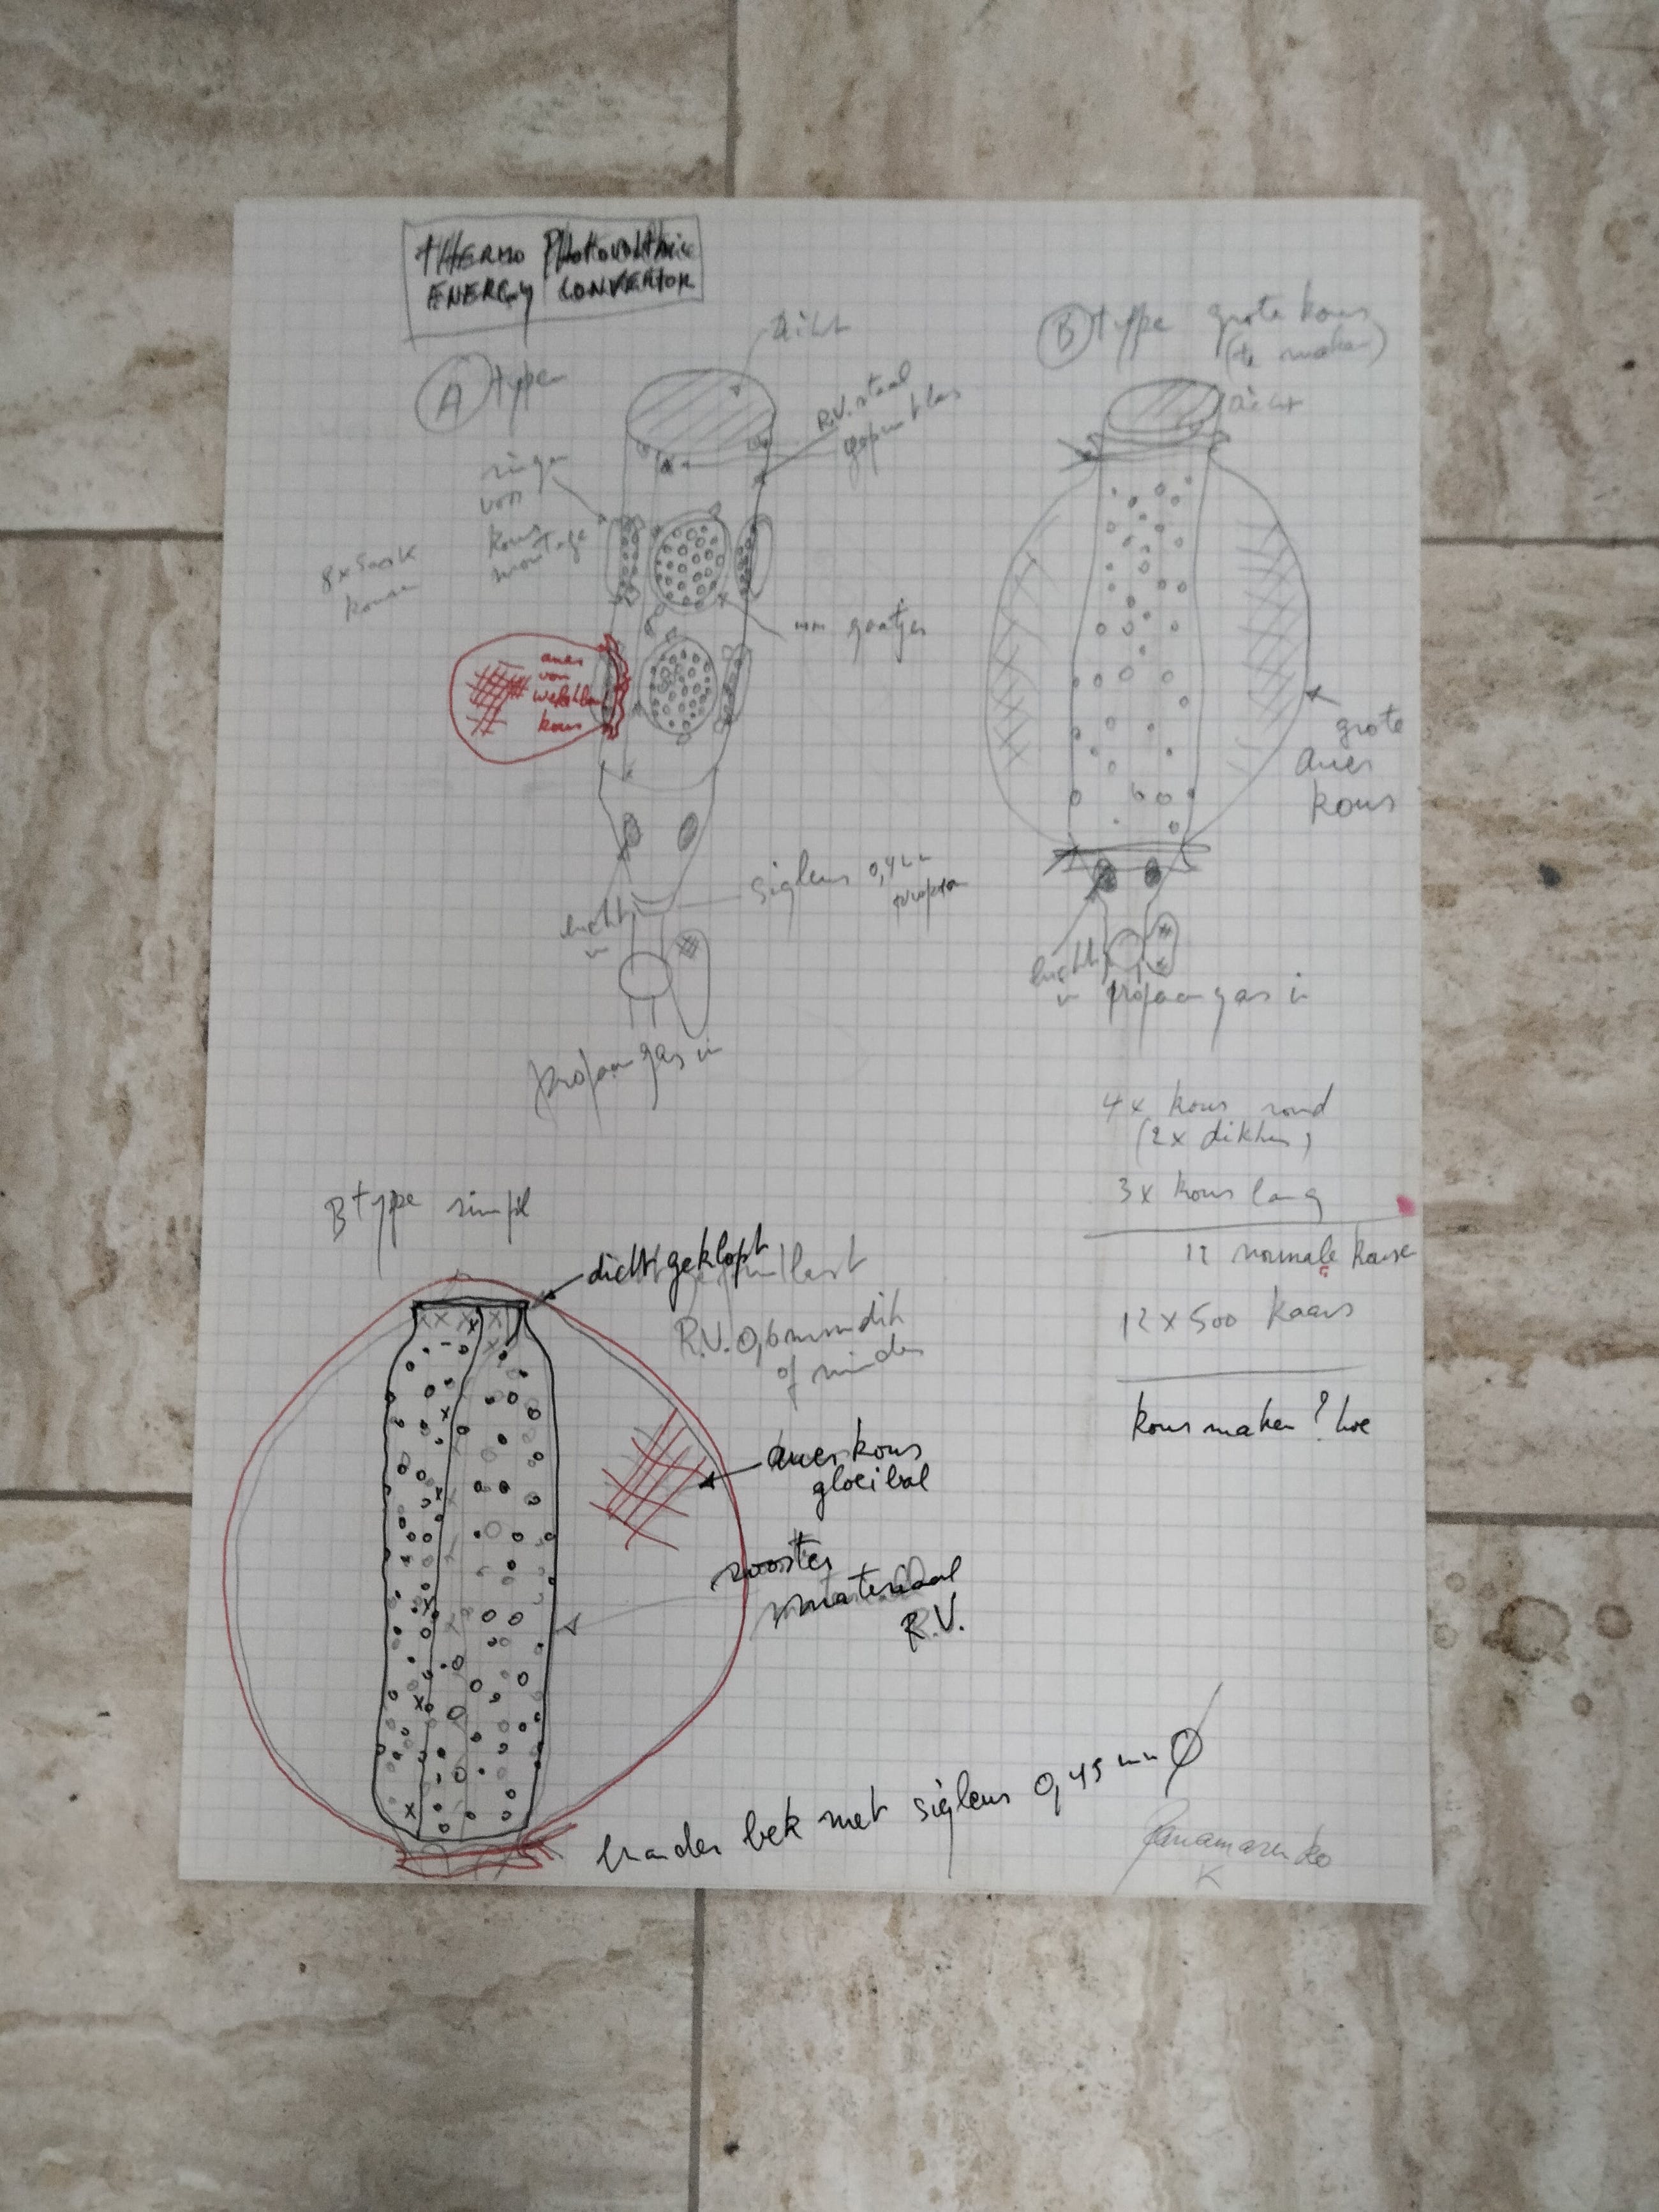 THERMO PHOTOVOLTAIC
ENERGY CONVERTOR
A type
dicht
R.V. staal
gepuntlas
ringen
voor
kous
montage
8 x 500 K
kousen
mm gaatjes
auer
von
kous
lucht
in
sigleur 0,4 mm
propaan gas in
B type grote kous
(te maken)
dicht
grote
auer
kous
lucht
in propaan gas in
4x kous rond
(2x dikker)
3x kous lang
12 normale kouse
12 x 500 kaars
kous maken? hoe
B type simpel
dicht geklopt
R.V. 0,6 mm dik
of minder
auerkous
gloeibol
rooster
materiaal
R.V.
brander bek met sigleur 0,45 mm Ø
Panamarenko